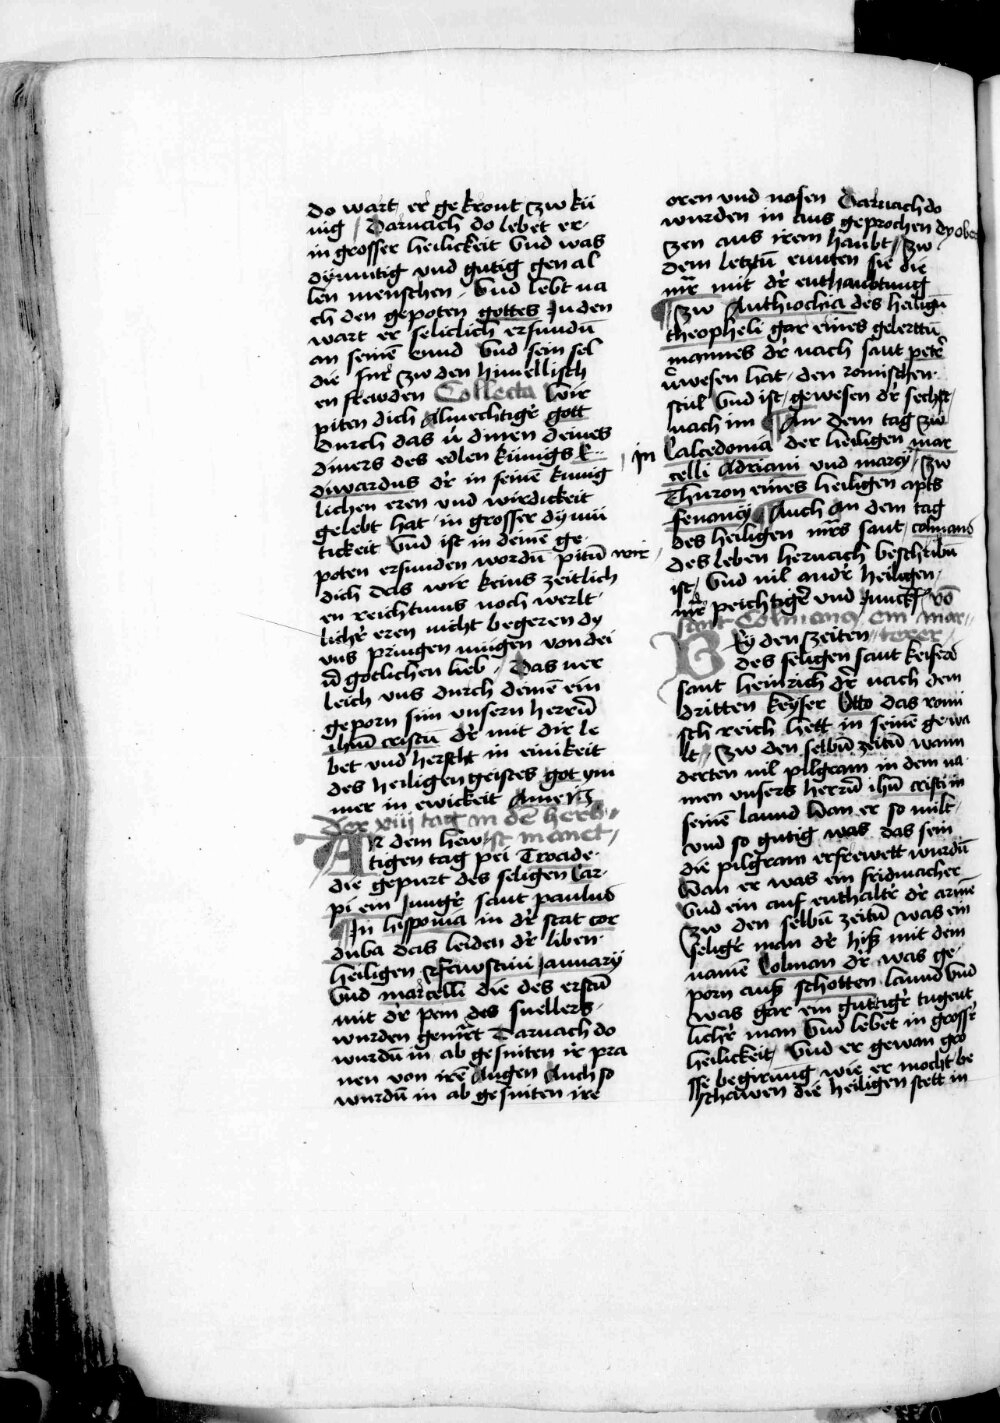 do wart er gekront zw kü
nig / Darnach do lebet er
in grosser heilickeit Vnd was
dÿmutig vnd gutig gen al
len menschen / Vnd lebt na
ch den gepoten gottes Jn den
wart er seliclich erfundū
an seinē ennd Vnd sein sel
die fur zw den himellisch
en frewden Collecta Wir
piten dich Almechtigr̄ gott
durch das v̄ dinen deines
diners des edlen künigs E
diwardus dr̄ in seinē künig
lichen eren vnd wirdickeit
gelebt hat in grosser dÿmü
tickeit Vnd ist in deinē ge
poten erfunden wordū pitū wir
dich das wir keins zeitlich
en reichtums noch werlt
lichr̄ eren nicht begeren dy
vns pringen mügen von dei
nr̄ gotlichen lieb / Das ver
leich vns durch deinē ein
geporn sun vnsern herrn̄
ihm̄ cristū dr̄ mit dir le
bet vnd herscht in einikeit
des heiligen geistes got ym
mer in ewickeit Amen
Der xiiij tag in dē herb
st monet
An dem hew
tigen tag pei Troade
die gepurt des seligen Car
pi ein Jungr̄ sant paulus
Jn hisponia in dr̄ stat cor
duba das leiden dr̄ liben
heiligen Fawstini Januarÿ
Vnd marcelli die des erstū
mit dr̄ pein des snellers
wurden gemr̄t Darnach do
wurdū in ab gesniten ir pra
nen von irē Augen Auch so
wurdū in ab gesniten ire
oren vnd nasen Darnach do
wurden in aus geprochen dy ober
zen aus irem haubt / Zw
dem letztū eruiten sie die
mr̄ mit dr̄ enthaubtung
Zw Anthiochia des heiligū
theopheli gar eines gelerttū
mannes dr̄ nach sant petr̄
v̄wesen hat den romischen
stul Vnd ist gewesen dr̄ sechst
nach im An dem tag zw
in Calcedonia der heiligen mar
celli Adriani vnd marcÿ / Zw
Thuron eines heiligen apts
Venancÿ Auch An dem tag
des heiligen mr̄rs sant colmans
des leben hernach beschribū
ist / Vnd vil andr̄ heiligen
mr̄r peichtigr̄ vnd Junckf̄ / Vō
sant Colmano ein mar
terer
Bey den zeiten
des seligen sant keisers
sant heinrich dr̄ nach dem
dritten keyser Otto das romi
sch reich hett in seinē gewa
lt / Zw den selbū zeitū wann
derten vil pilgram in dem na
men vnsers herrn̄ ihū cristi in
seinē lannd Wan er so milt
vnd so gutig was das sein
die pilgram erfrewett wurdū
Wan er was ein fridmacher
Vnd ein auf enthaltr̄ dr̄ armē
zw den selbū zeitū was ein
seligr̄ man dr̄ hiß mit dem
namē Colman dr̄ was ge
porn auß schotten lannd Vnd
was gar ein guttigr̄ tugent
lichr̄ man Vnd lebet in grossr̄
heilickeit / Vnd er gewan gro
sse begirung wie er mocht be
schawen die heiligen stett in